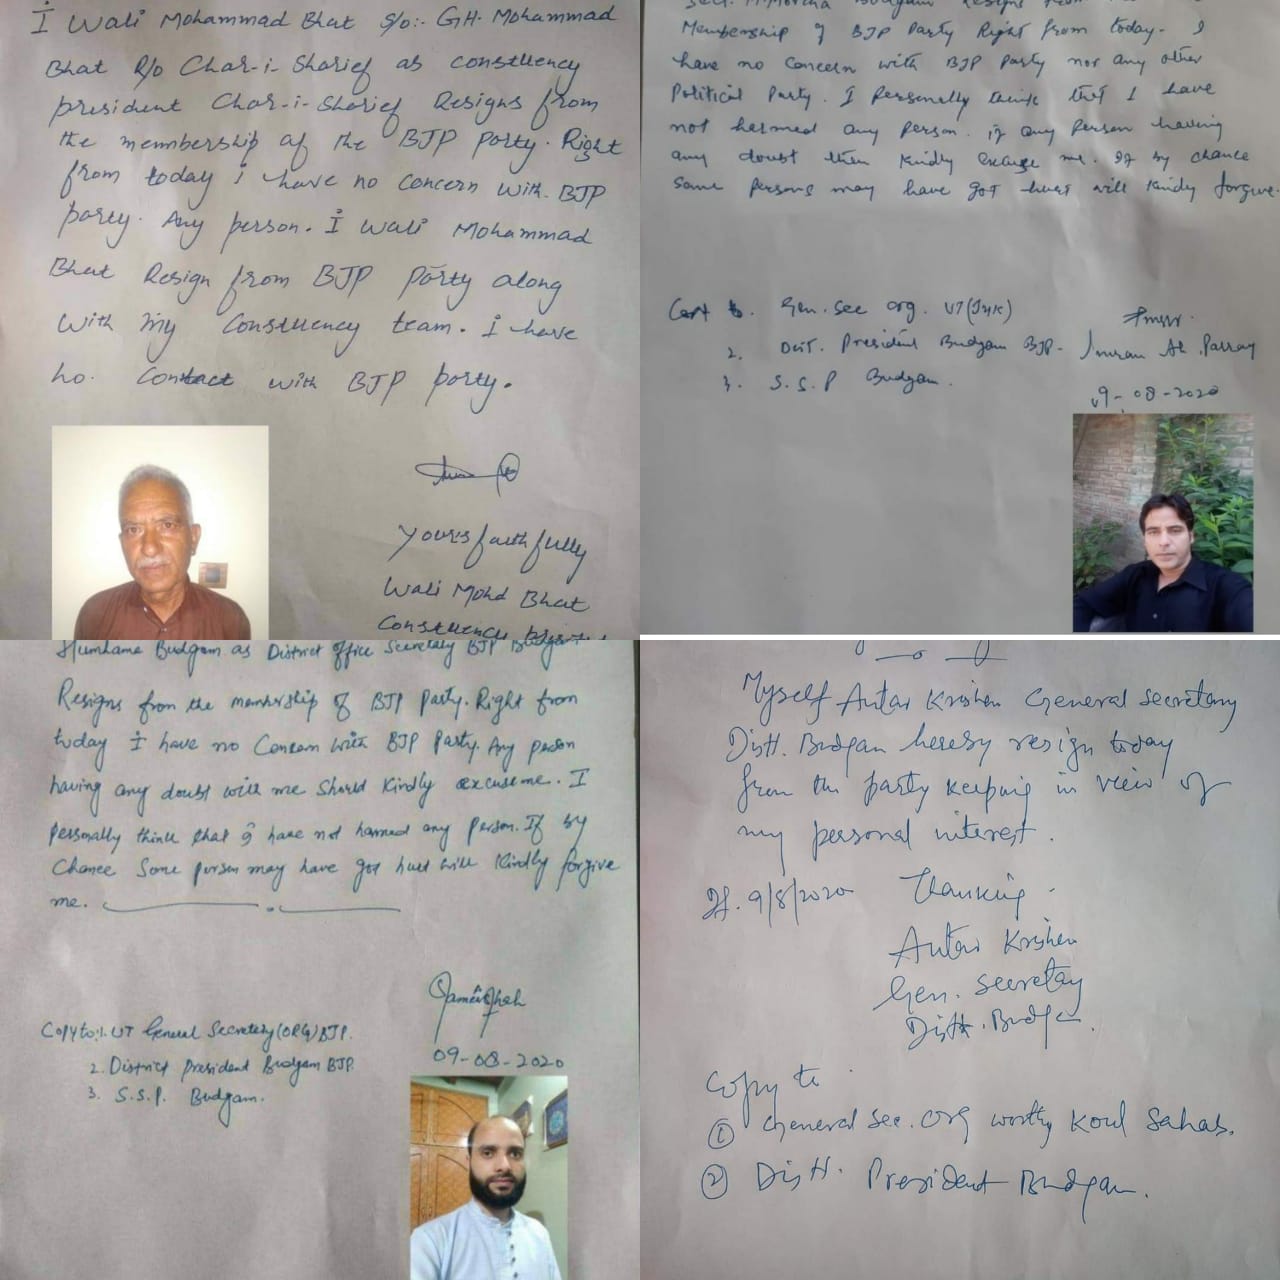 I Wali Mohammad Bhat S/o:- GH. Mohammad
Bhat R/o Char-i-Sharief as constuency
president Char-i-Sharief Resigns from
the membership of the BJP Party. Right
from today i have no concern with BJP
party. Any person. I Wali Mohammad
Bhat Resign from BJP Party along
with my Constuency team. i have
no. Contact with BJP party.
Yours faithfully
Wali Mohd Bhat
Constuency
Membership of BJP Party Right from today. I
have no concern with BJP Party nor any other
Political Party. I Personally think that I have
not harmed any Person. if any Person having
any doubt then kindly excuse me. If by chance
some Persons may have got hurt will kindy forgive.
Gen. Sec org. UT(J&K)
2. Dist. President Budgam BJP.
3. S.S.P Budgam.
Imran Ah. Parray
09-08-2020
Humhama Budgam as District Office Secretary BJP Budgam
Resigns from the membership of BJP Party. Right from
today I have no Concern with BJP Party. Any person
having any doubt with me Should Kindly excuse me. I
personally think that I have not harmed any Person. If by
Chance Some person may have got hurt will Kindly forgive
me.
Copy to:1. UT General Secretary (ORG) BJP.
2. District President Budgam BJP.
3. S.S.P. Budgam.
09-08-2020
Myself Autar Krishen General Secretary
Distt. Budgam hereby resign today
from the party keeping in view of
my personal interest.
9/8/2020 Thanking.
Autar Krishen
Gen. Secretary
Distt. Budgam.
Copy to
① General Sec. Org worthy Koul Sahab.
② Distt. President Budgam.